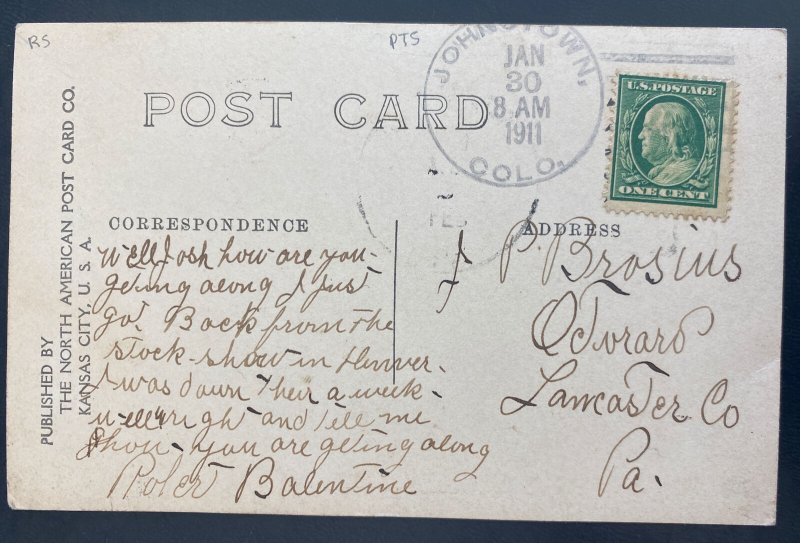 RS
PTS
JOHNSTOWN,
JAN
30
8 AM
1911
COLO.
U.S. POSTAGE
ONE CENT
POST CARD
CORRESPONDENCE
ADDRESS
PUBLISHED BY
THE NORTH AMERICAN POST CARD CO.
KANSAS CITY, U. S. A.
FEB
Well Josh how are you-
geting along I just
got Back from the
stock-show in Denver.
I was down their a week-
well wright and tell me
how you are geting along
Robert Balentine
P. Brosius
Octoraro
Lancaster Co
Pa.